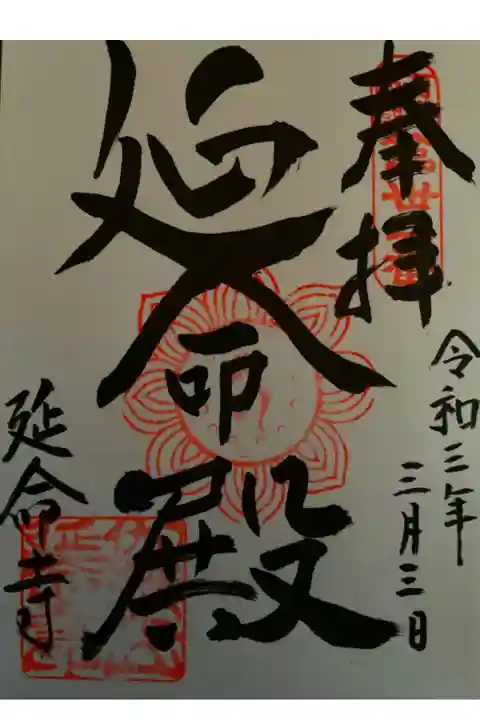 奉拝
令和三年
三月三日
延命殿
延命寺